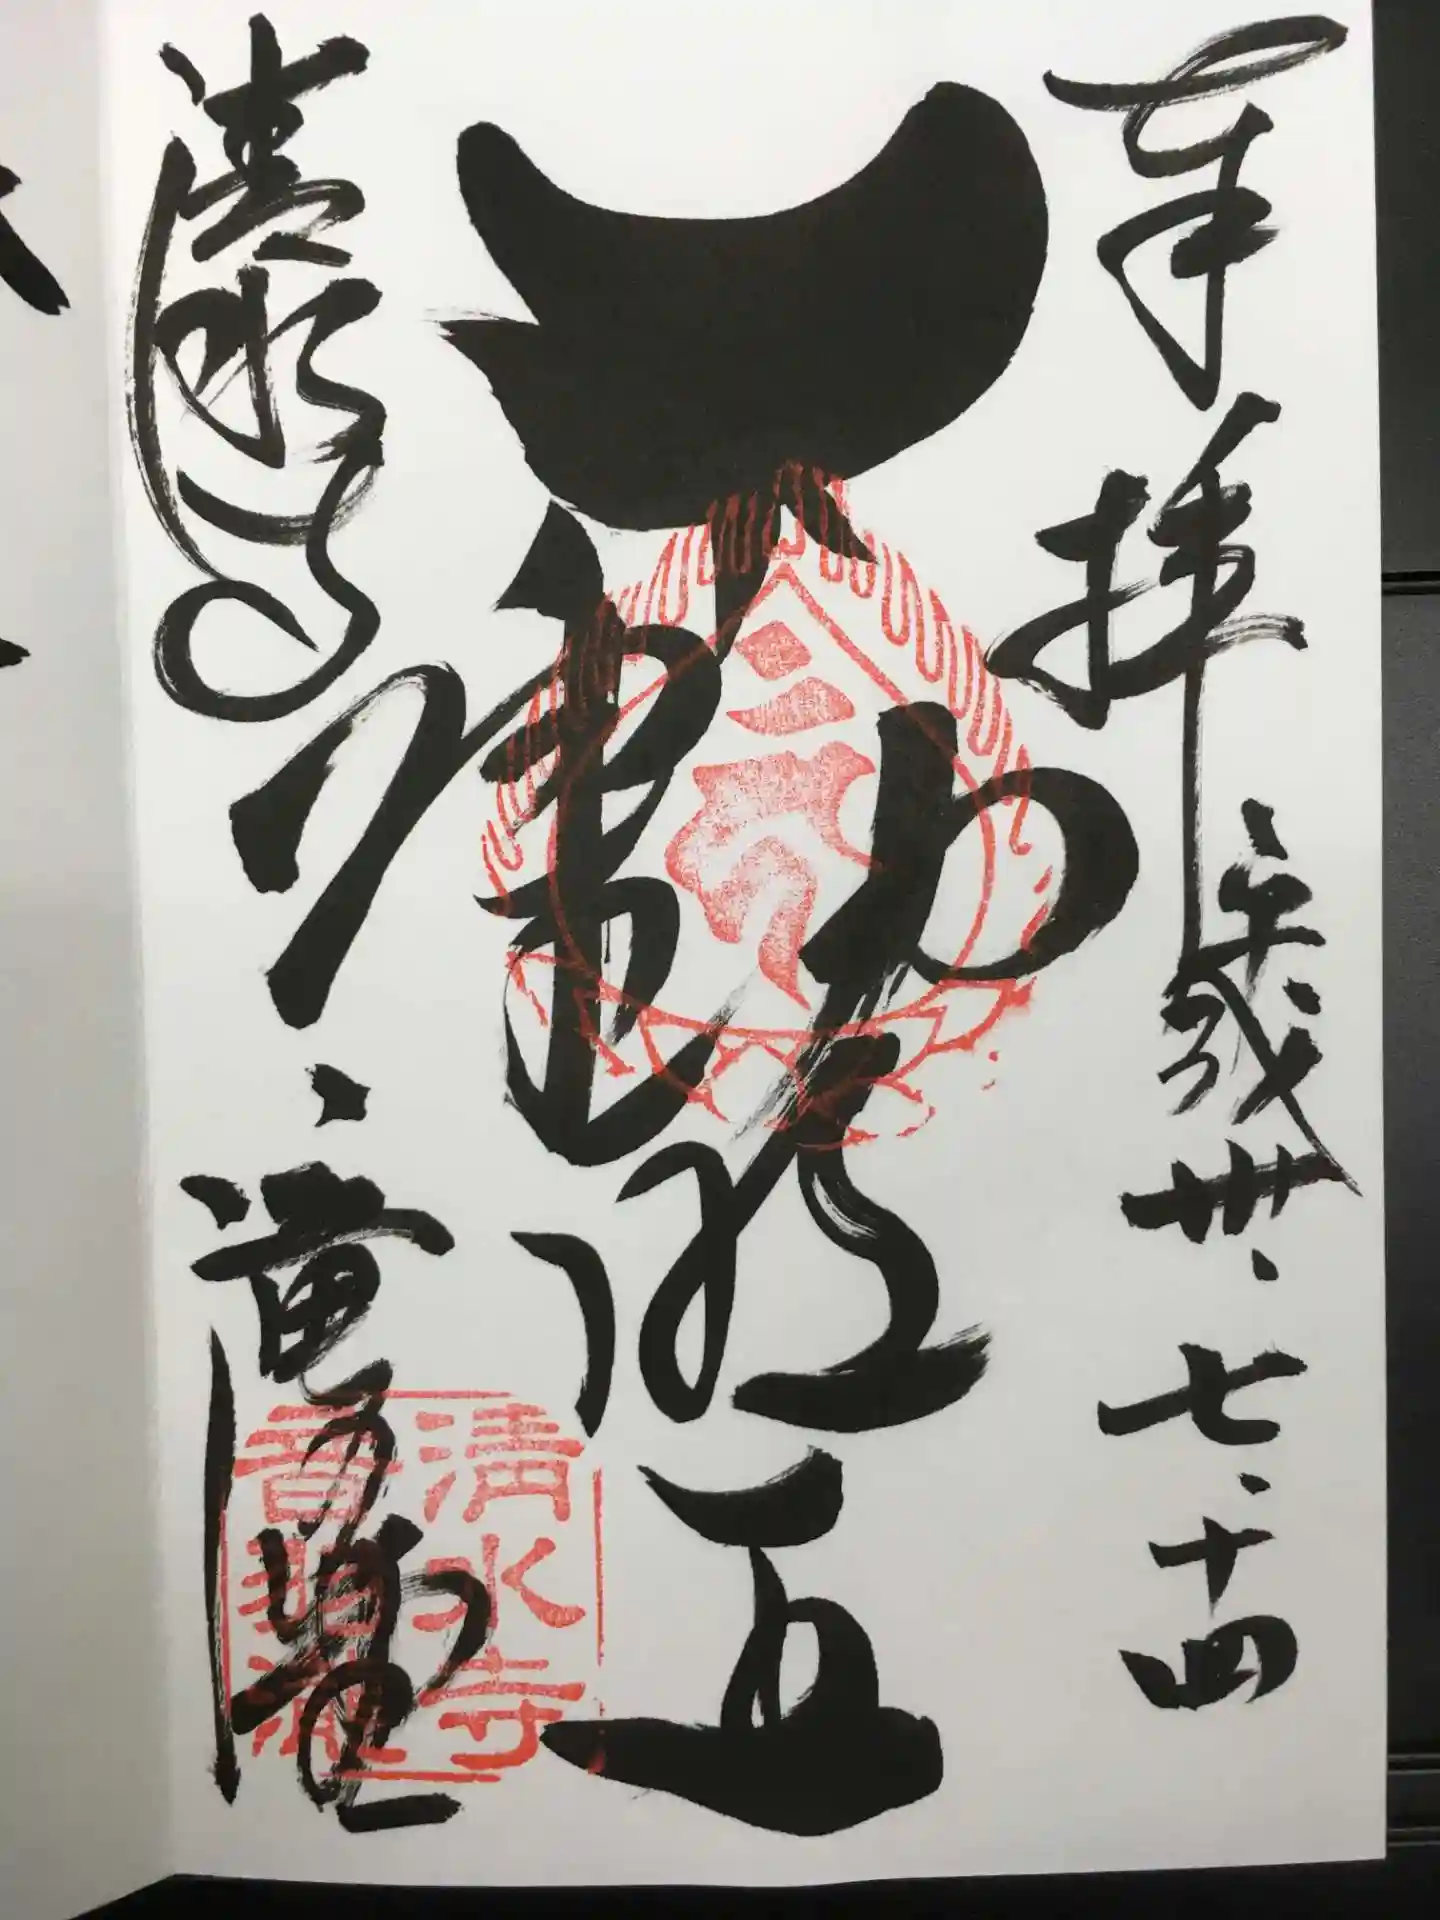 奉拝 平成卅、七、十四
不動明王
清水寺 音羽瀧堂
清水寺
音羽瀧